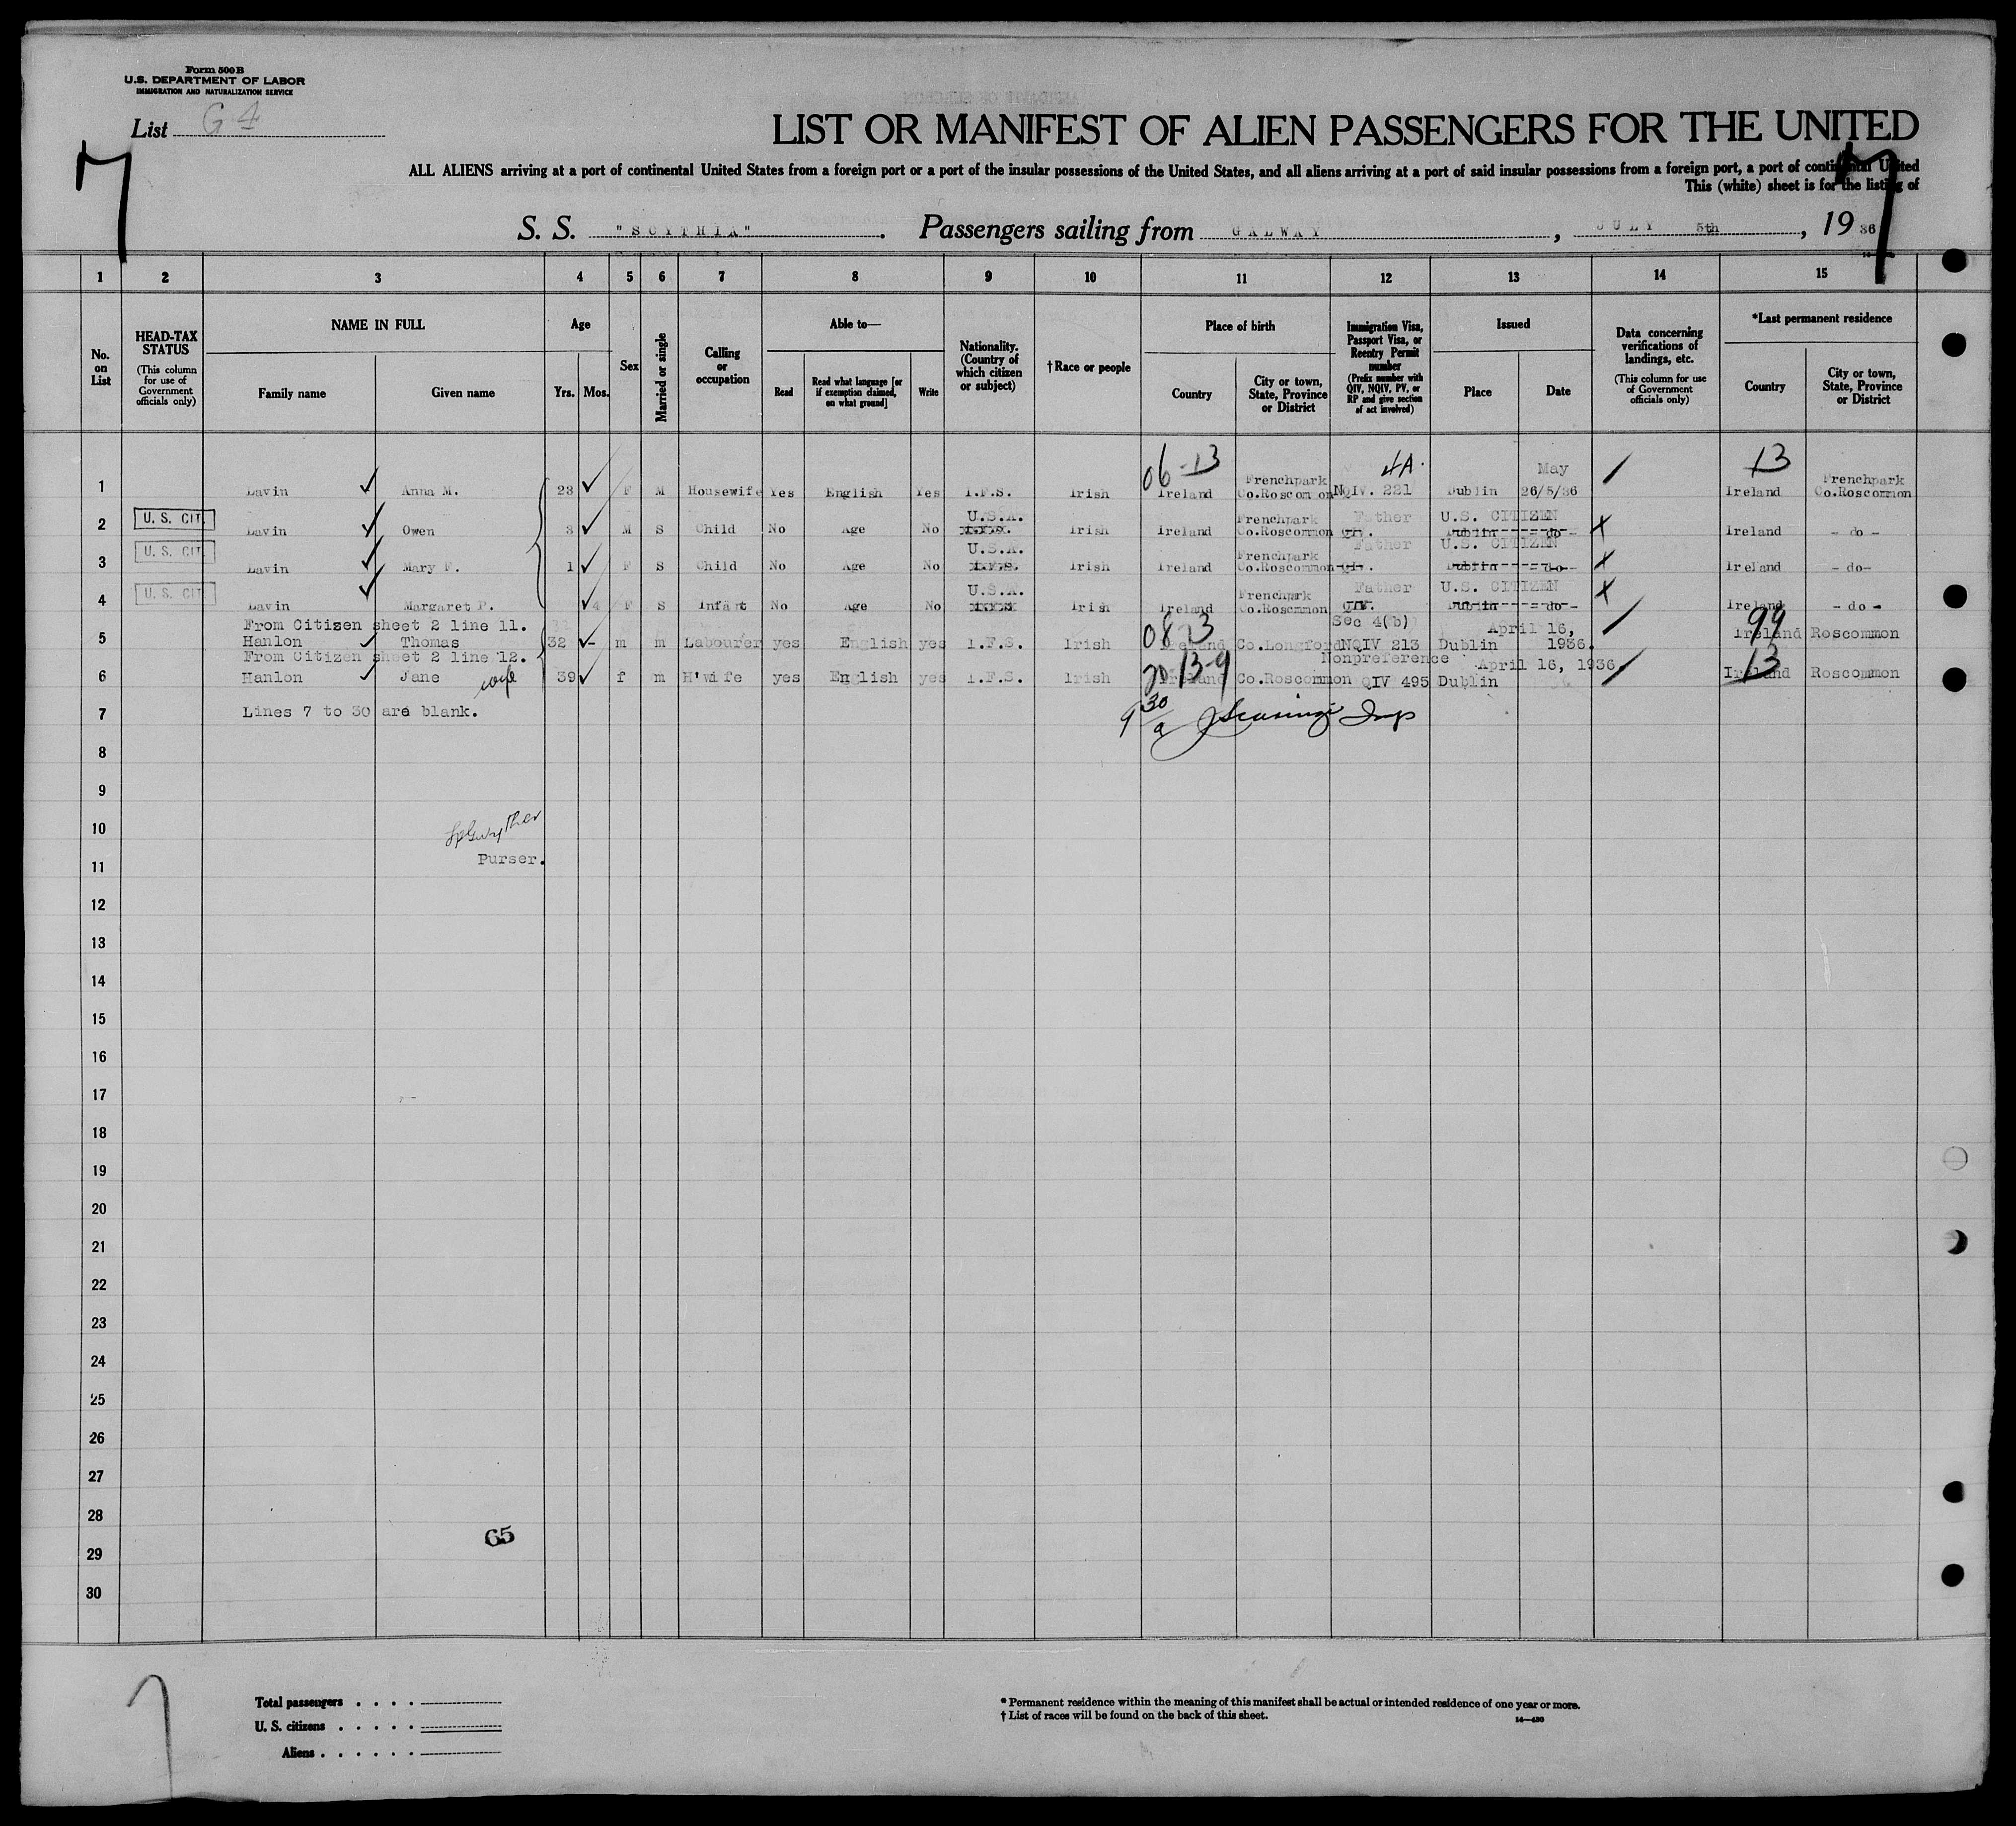 Form 500 B
U.S. DEPARTMENT OF LABOR
IMMIGRATION AND NATURALIZATION SERVICE
List G 4
LIST OR MANIFEST OF ALIEN PASSENGERS FOR THE UNITED
ALL ALIENS arriving at a port of continental United States from a foreign port or a port of the insular possessions of the United States, and all aliens arriving at a port of said insular possessions from a foreign port, a port of continental United
This (white) sheet is for the listing of
7 7
S. S. "SCYTHIA". Passengers sailing from GALWAY, JULY 5th, 1936
1 2 3 4 5 6 7 8 9 10 11 12 13 14 15
No. on List
HEAD-TAX STATUS
(This column for use of Government officials only)
NAME IN FULL
Family name Given name
Age
Yrs. Mos.
Sex
Married or single
Calling or occupation
Able to—
Read Read what language [or if exemption claimed, on what ground] Write
Nationality. (Country of which citizen or subject)
†Race or people
Place of birth
Country City or town, State, Province or District
Immigration Visa, Passport Visa, or Reentry Permit number
(Prefix number with QIV, NQIV, PV, or RP and give section of act involved)
Issued
Place Date
Data concerning verifications of landings, etc.
(This column for use of Government officials only)
*Last permanent residence
Country City or town, State, Province or District
06-13 4A. May 13
Frenchpark Frenchpark
1 Lavin Anna M. 23 F M Housewife Yes English Yes I.F.S. Irish Ireland Co.Roscommon NQIV. 221 Dublin 26/5/36 Ireland Co.Roscommon
U.S.A. Frenchpark Father U.S. CITIZEN
2 U. S. CIT. Lavin Owen 3 M S Child No Age No I.F.S. Irish Ireland Co.Roscommon QIV. Dublin - do - Ireland - do -
U.S.A. Frenchpark Father U.S. CITIZEN
3 U. S. CIT. Lavin Mary F. 1 F S Child No Age No I.F.S. Irish Ireland Co.Roscommon QIV. Dublin - do - Ireland - do-
U.S.A. Frenchpark Father U.S. CITIZEN
4 U. S. CIT. Lavin Margaret P. 4 F S Infant No Age No I.F.S. Irish Ireland Co.Roscommon QIV. Dublin - do - Ireland - do -
From Citizen sheet 2 line 11. 08 13 Sec 4(b) April 16, 99
5 Hanlon Thomas 32 - m m Labourer yes English yes I.F.S. Irish Ireland Co.Longford NQIV 213 Dublin 1936. Ireland Roscommon
From Citizen sheet 2 line 12. 20 13-9 Nonpreference April 16, 1936 13
6 Hanlon Jane wife 39 f m H'wife yes English yes I.F.S. Irish Ireland Co.Roscommon QIV 495 Dublin Ireland Roscommon
7 Lines 7 to 30 are blank. 9 30 a Insp
8
9
10
Purser.
11
12
13
14
15
16
17
18
19
20
21
22
23
24
25
26
27
28
65
29
30
Total passengers . . . .
U. S. citizens . . . . .
Aliens . . . . . .
* Permanent residence within the meaning of this manifest shall be actual or intended residence of one year or more.
† List of races will be found on the back of this sheet.
14—430